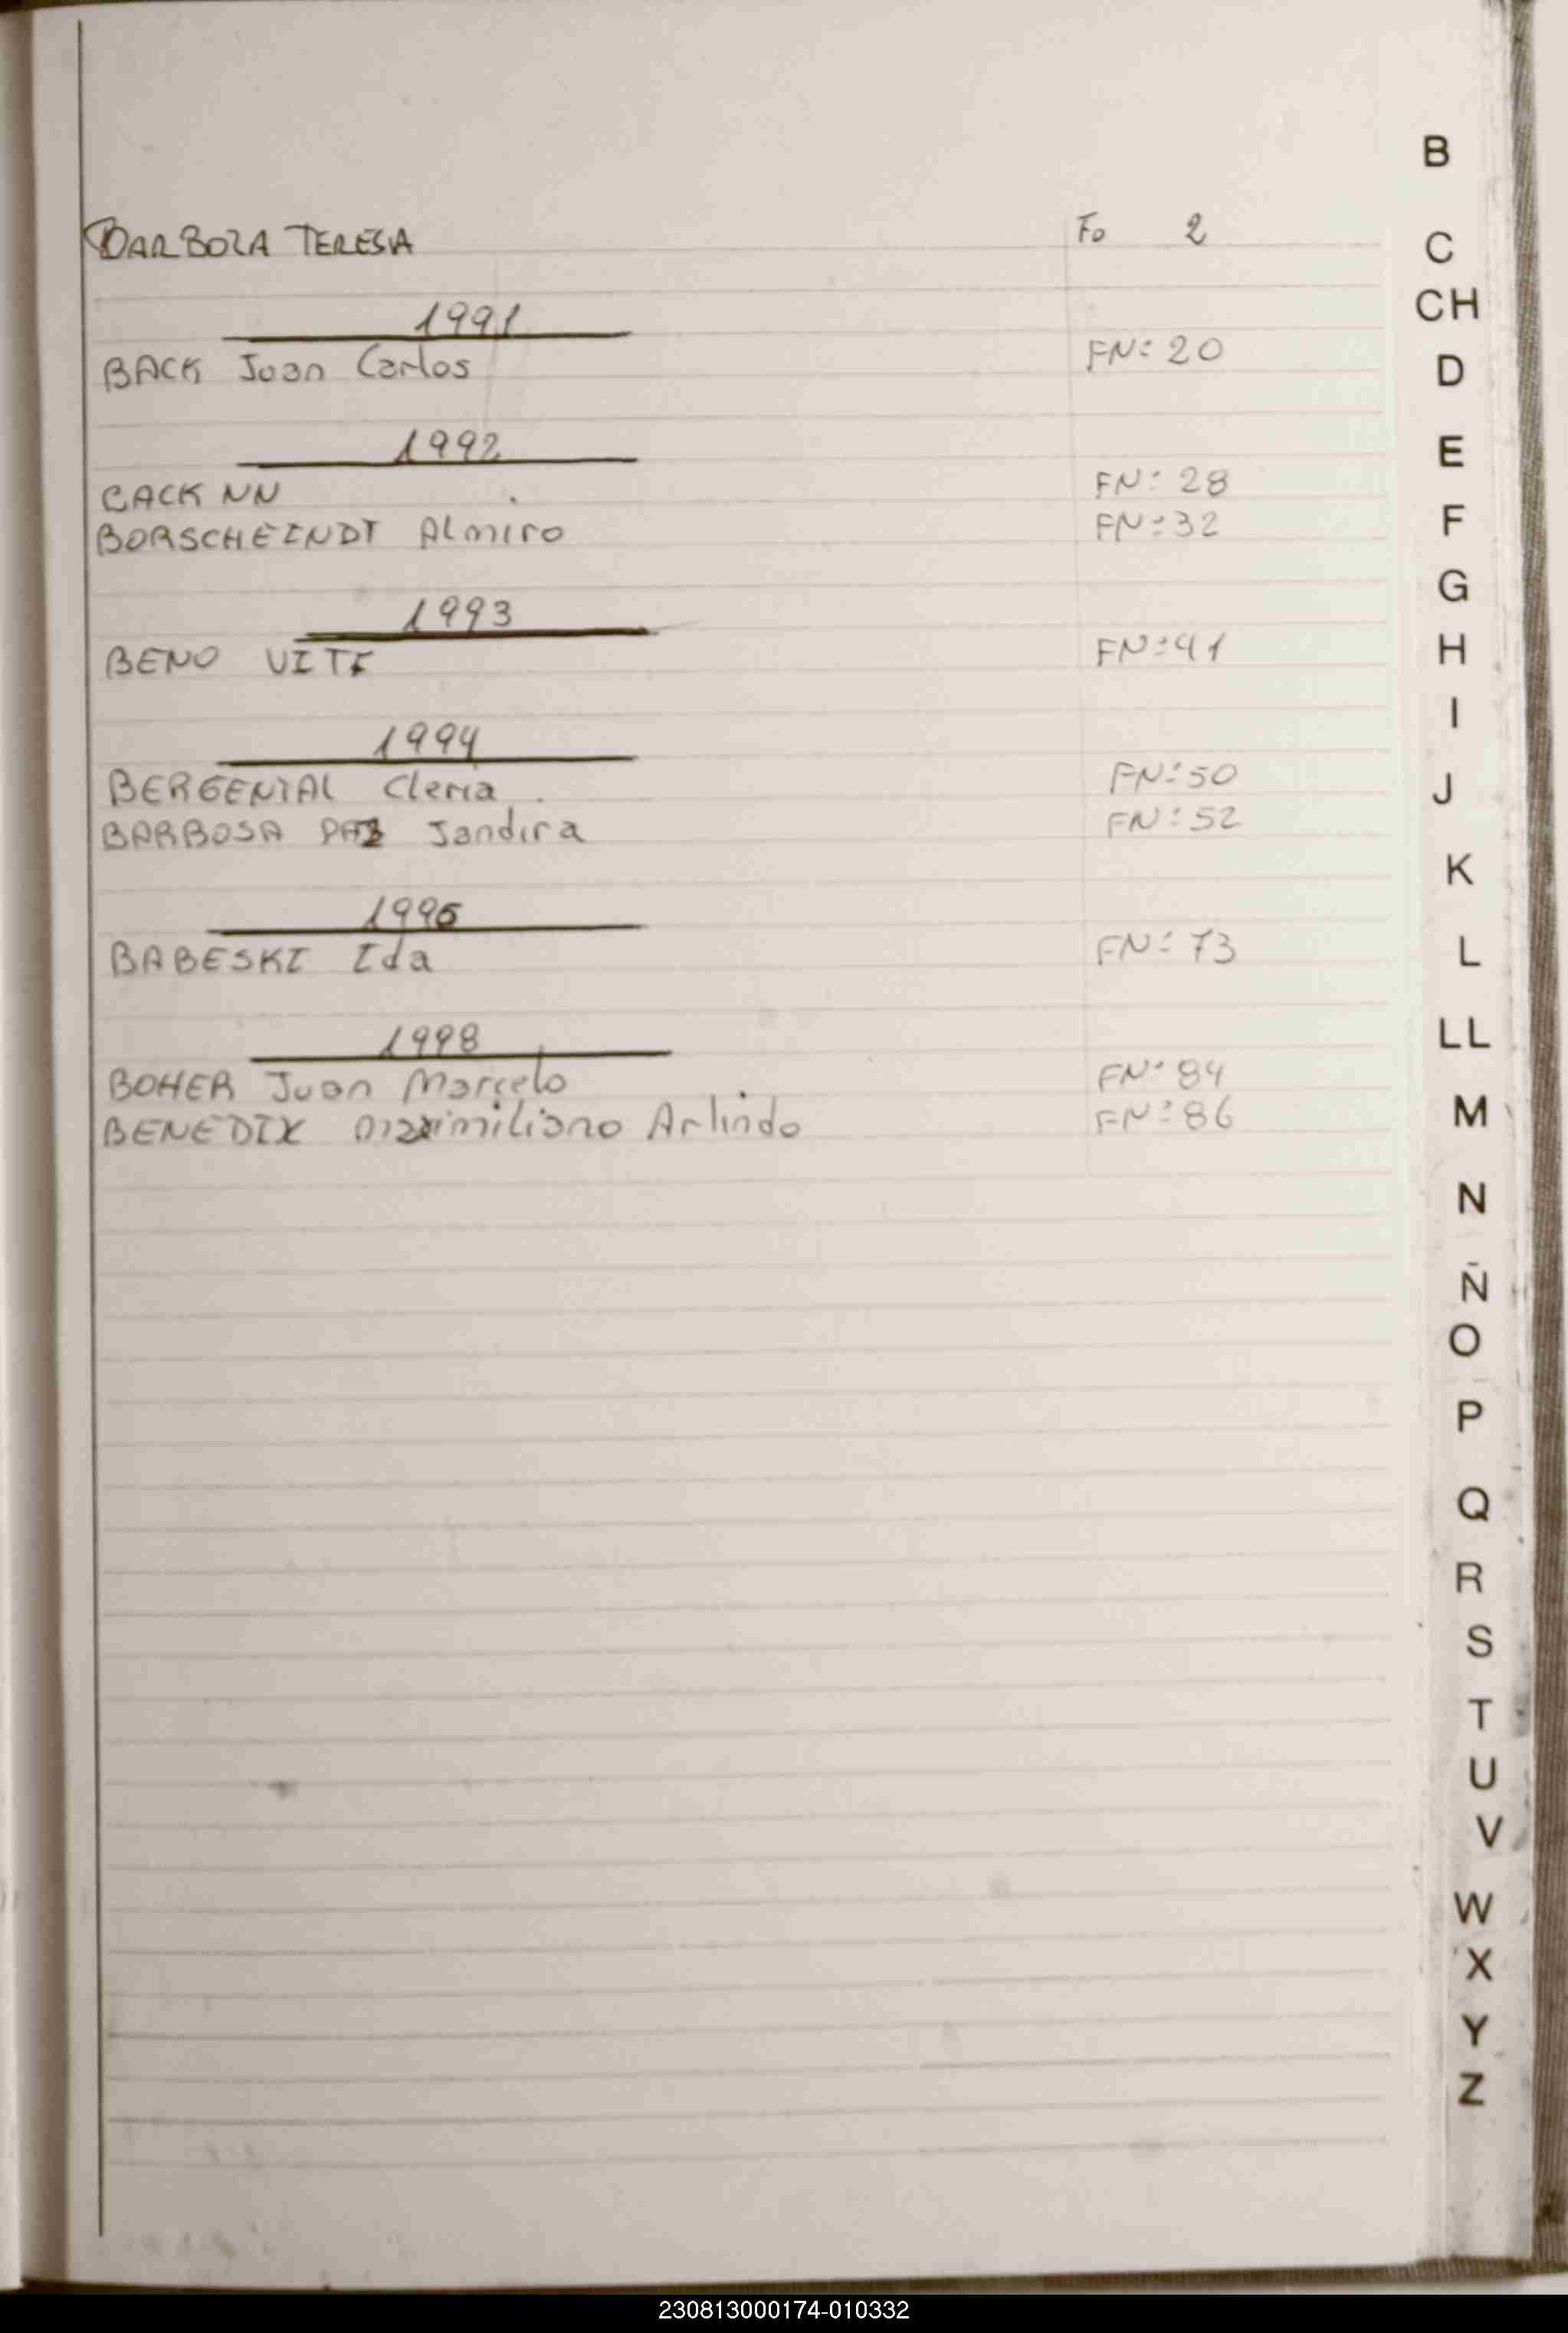 BARBOZA TERESA Fo 2
1991
BACK Juan Carlos FN: 20
1992
CACK NN FN: 28
BORSCHEINDT Almiro FN: 32
1993
BENO VITE FN: 41
1994
BERGENTAL Cleria FN: 50
BARBOSA PAZ Jandira FN: 52
1996
BABESKI Ida FN: 73
1998
BOHER Juan Marcelo FN: 84
BENEDIX Maximiliano Arlindo FN: 86
B
C
CH
D
E
F
G
H
I
J
K
L
LL
M
N
Ñ
O
P
Q
R
S
T
U
V
W
X
Y
Z
230813000174-010332